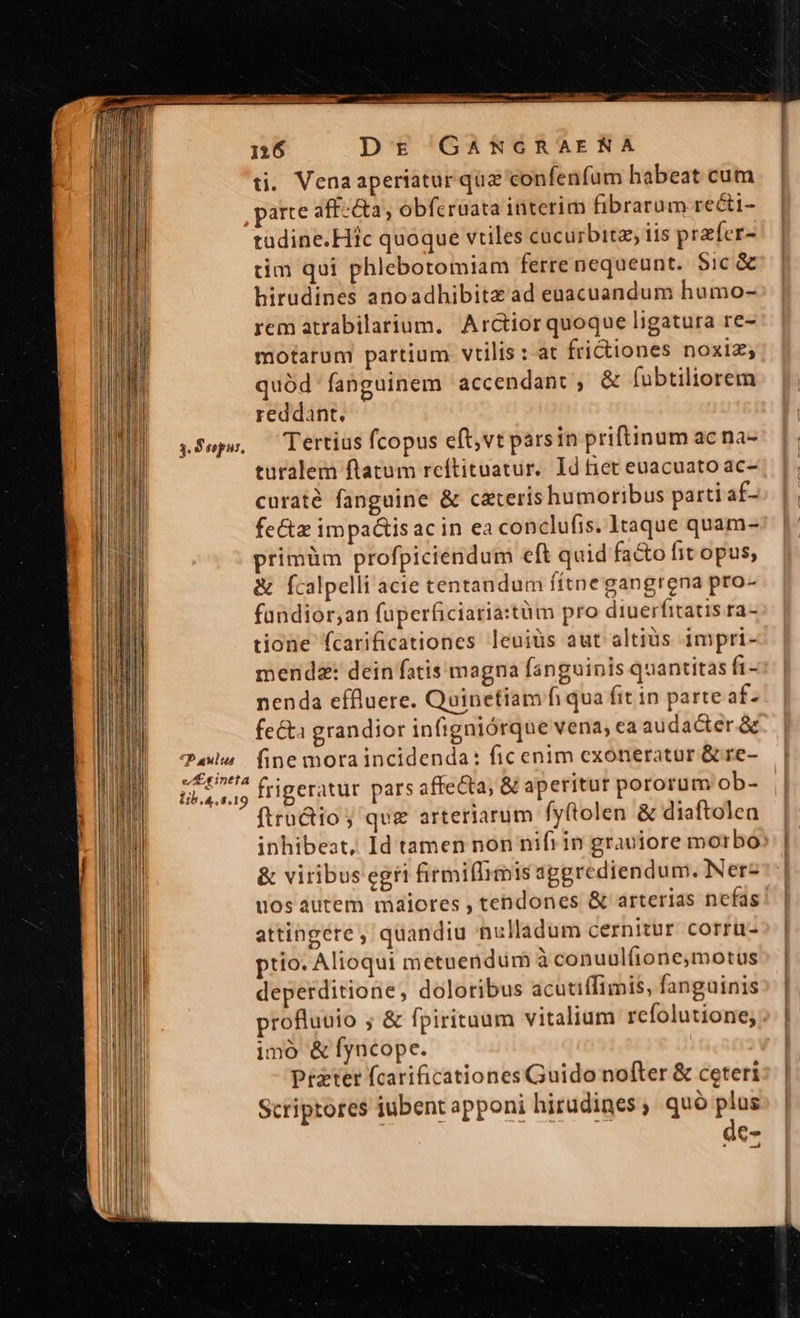 116 DE GANGRAENA
ti. Vena aperiatur quæ conſenſum habeat cum
parte affecta, obſeruata interim fibrarum recti-
tudine. Hîc quoque vtiles cucurbitæ, iis præſer-
tim qui phlebotomiam ferre nequeunt. Sic &
hirudines anoadhibitæ ad euacuandum humo-
rem atrabilarium. Arctior quoque ligatura re-
motarum partium vtilis: at frictiones noxiæ,
quòd ſanguinem accendant, & ſubtiliorem
reddant.
3. Scopus.
Tertius ſcopus eſt, vt pars in priſtinum ac na-
turalem ſtatum reſtituatur. Id fiet euacuato ac-
curatè ſanguine & cæteris humoribus parti af-
fectæ impactis ac in ea concluſis. Itaque quam-
primùm proſpiciendum eſt quid facto ſit opus,
& ſcalpelli acie tentandum ſítne gangrena pro-
fundior, an ſuperficiaria: tùm pro diuerſitatis ra-
tione ſcarificationes leuiùs aut altiùs impri-
mendæ: dein ſatis magna ſanguinis quantitas ſi-
nenda effluere. Quinetiam ſi qua ſit in parte af-
fecta grandior inſigniórque vena, ea audacter &
Paulus
Ægineta
lib.4.c.19
ſine mora incidenda: ſic enim exoneratur & re-
frigeratur pars affecta, & aperitur pororum ob-
ſtructio, quæ arteriarum ſyſtolen & diaſtolen
inhibeat. Id tamen non niſi in grauiore morbo
& viribus egri firmiſſimis aggrediendum. Ner-
uos autem maiores, tendones & arterias nefas
attingere, quandiu nulladum cernitur corru-
ptio. Alioqui metuendum à conuulſione, motus
deperditione, doloribus acutiſſimis, ſanguinis
profluuio, & ſpirituum vitalium reſolutione,
imò & ſyncope.
Præter ſcarificationes Guido noſter & cęteri
Scriptores iubent apponi hirudines, quò plus
de-